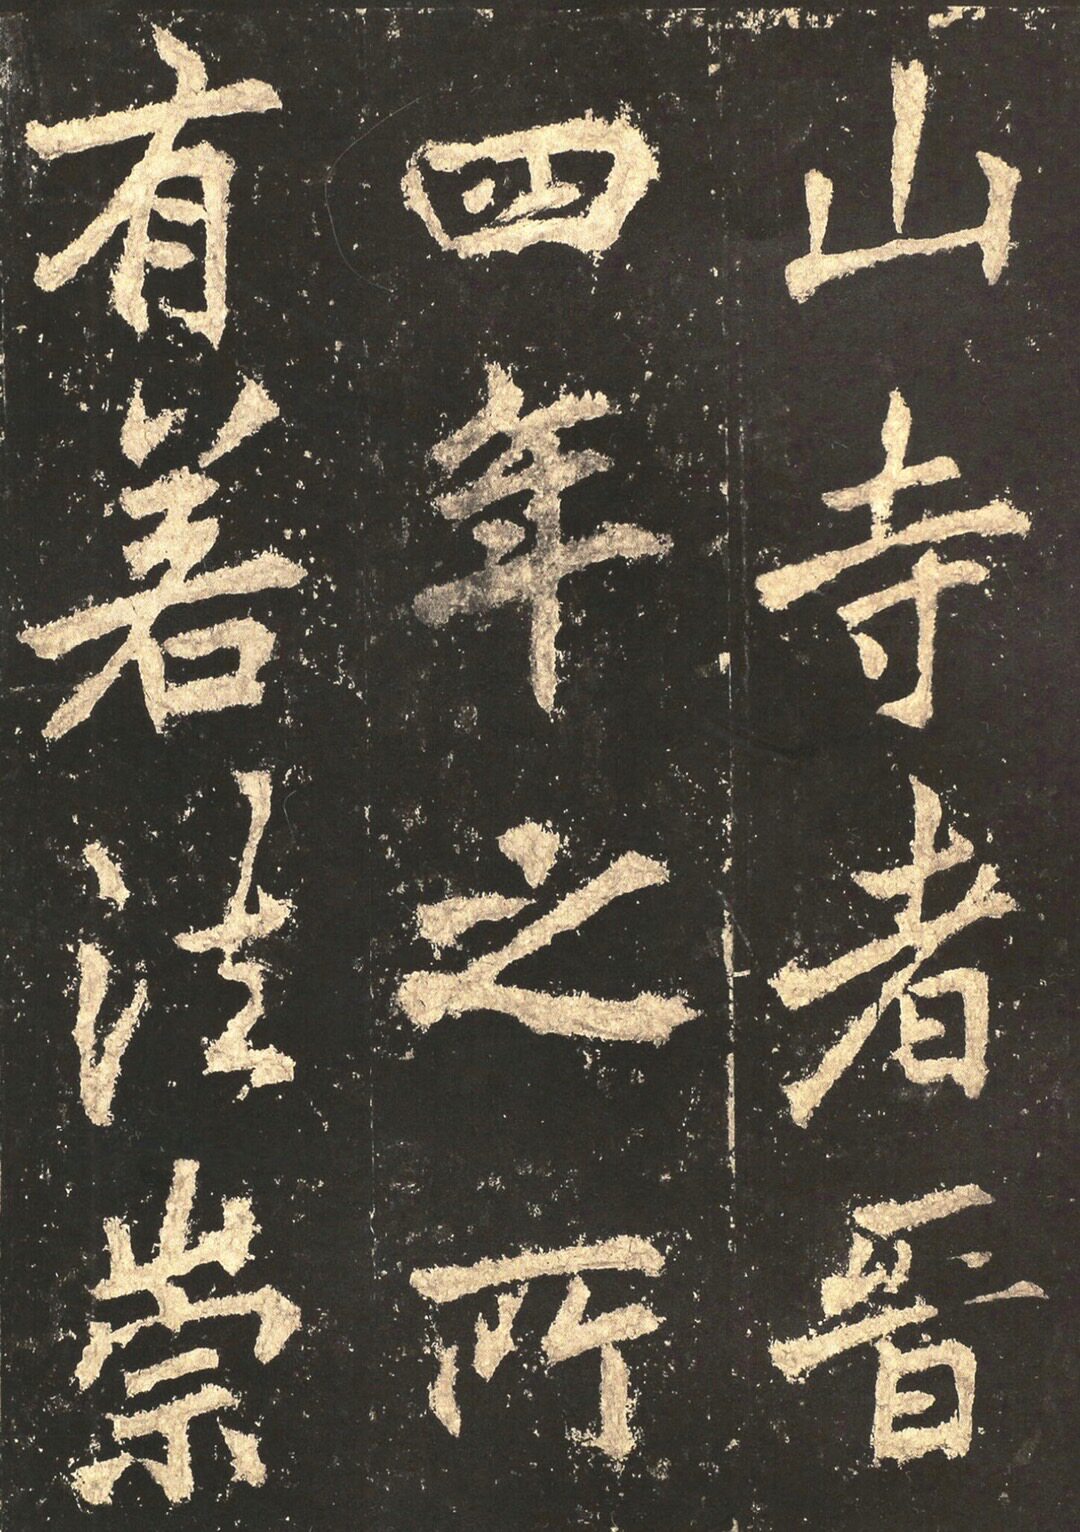 山寺者晉
四年之所
有若法崇